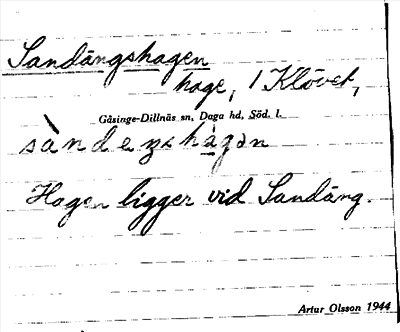 Sandängshagen
hage, 1 Klövet,
Gåsinge-Dillnäs sn, Daga hd, Söd. l.
Hagen ligger vid Sandäng.
Artur Olsson 1944